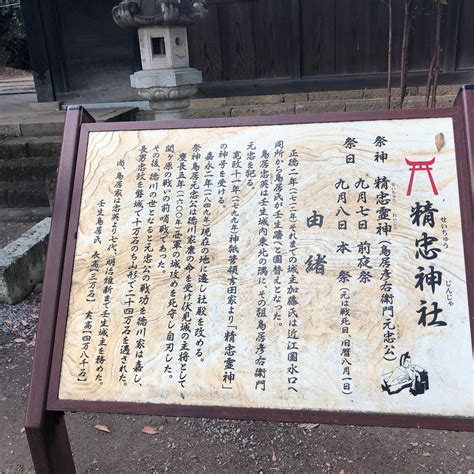 精忠神社
せいちゅう じんじゃ
祭神 精忠霊神(鳥居彦右衛門元忠公)
せいちゅうれいしん
祭日 九月七日 前夜祭
九月八日 本祭(元は戦死日・旧暦八月一日)
由緒
正徳二年(一七一二)それまでの城主加藤氏は近江国水口へ
同所から鳥居氏が壬生藩へと国替えとなった。
鳥居忠英は壬生城内東北の隅に、その祖鳥居彦右衛門
元忠を祀る。
寛政十一年(一七九九)神祇管領吉田家より「精忠霊神」
の神号を受ける。
嘉永二年(一八四九)現在の地に遷し社殿を改める。
祭神鳥居元忠公は徳川家康の命を受け伏見城の主将として
慶長五年(一六〇〇)西軍の城攻めを死守し自刃した。
関ヶ原の戦いの前哨戦であった。
その後、徳川の世となると元忠公の戦功を徳川家は嘉し、
長男忠政を磐城で十万石のち山形で二十四万石を遇された。
尚、鳥居家は忠英より七代、明治維新まで壬生城主を務めた。
壬生鳥居氏 表高[三万石] 実高[四万八千石]